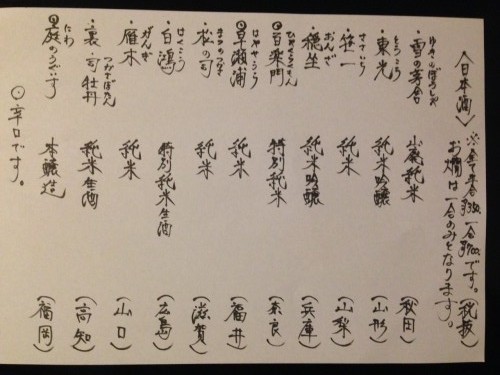 〈日本酒〉
※全て半合¥350、一合¥700です。(税抜)
お燗は一合のみとなります。
ゆきのぼうしゃ
・雪の茅舎 山廃純米 (秋田)
とうこう
・東光 純米吟醸 (山形)
ささいち
・笹一 純米 (山梨)
おんざ
・穏坐 純米吟醸 (兵庫)
ひゃくらくもん
⦿百楽門 特別純米 (奈良)
はやせうら
⦿早瀬浦 純米 (福井)
まつのつかさ
・松の司 純米 (滋賀)
はくこう
・白鴻 特別純米生酒 (広島)
がんぎ
・雁木 純米 (山口)
つかさぼたん
・裏 司牡丹 純米生酒 (高知)
にわ
⦿庭のうぐいす 本醸造 (福岡)
⦿辛口です。